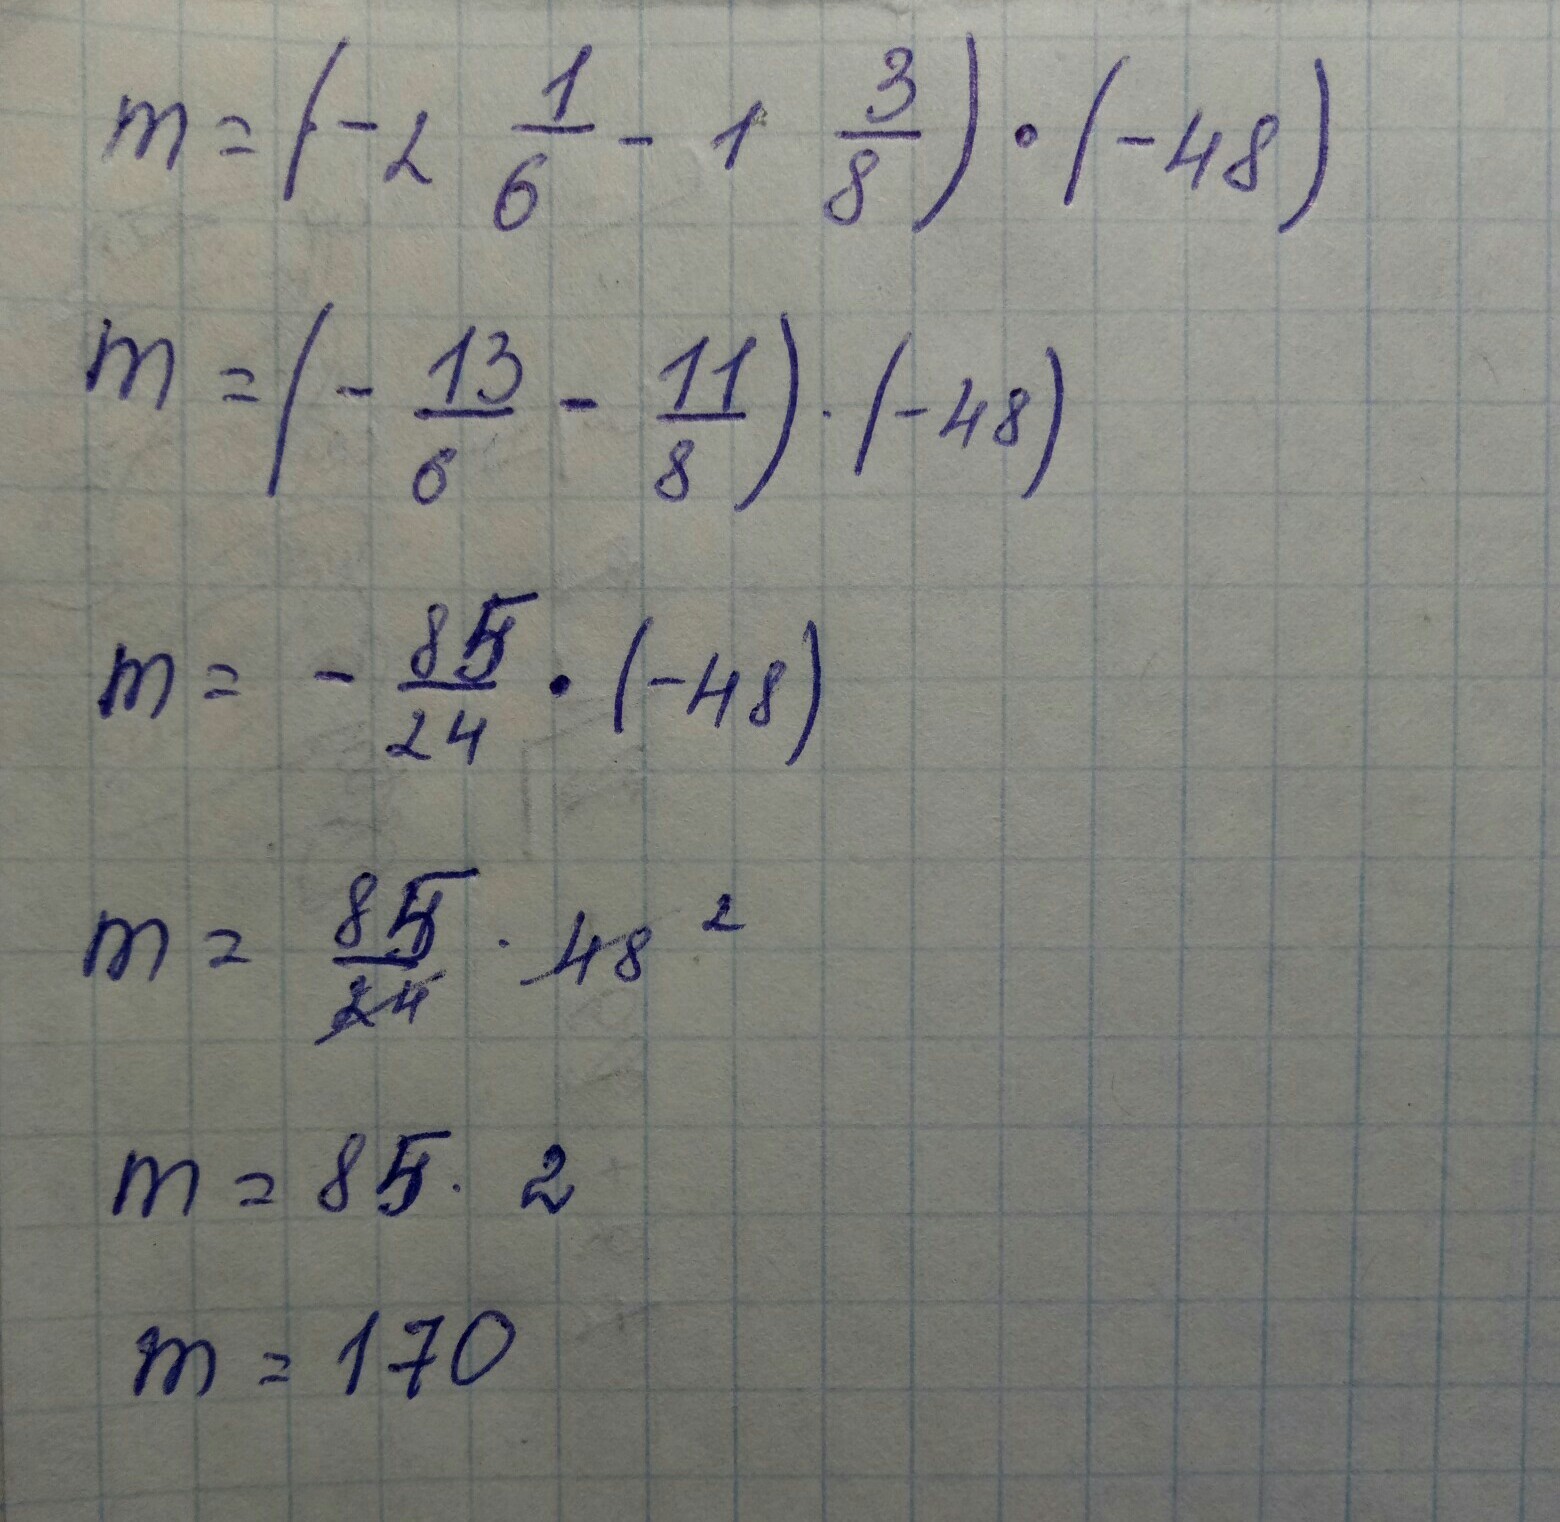 m = (-2 1/6 - 1 3/8) · (-48)
m = (- 13/6 - 11/8) · (-48)
m = - 85/24 · (-48)
m = 85/24 · 48 2
m = 85 · 2
m = 170